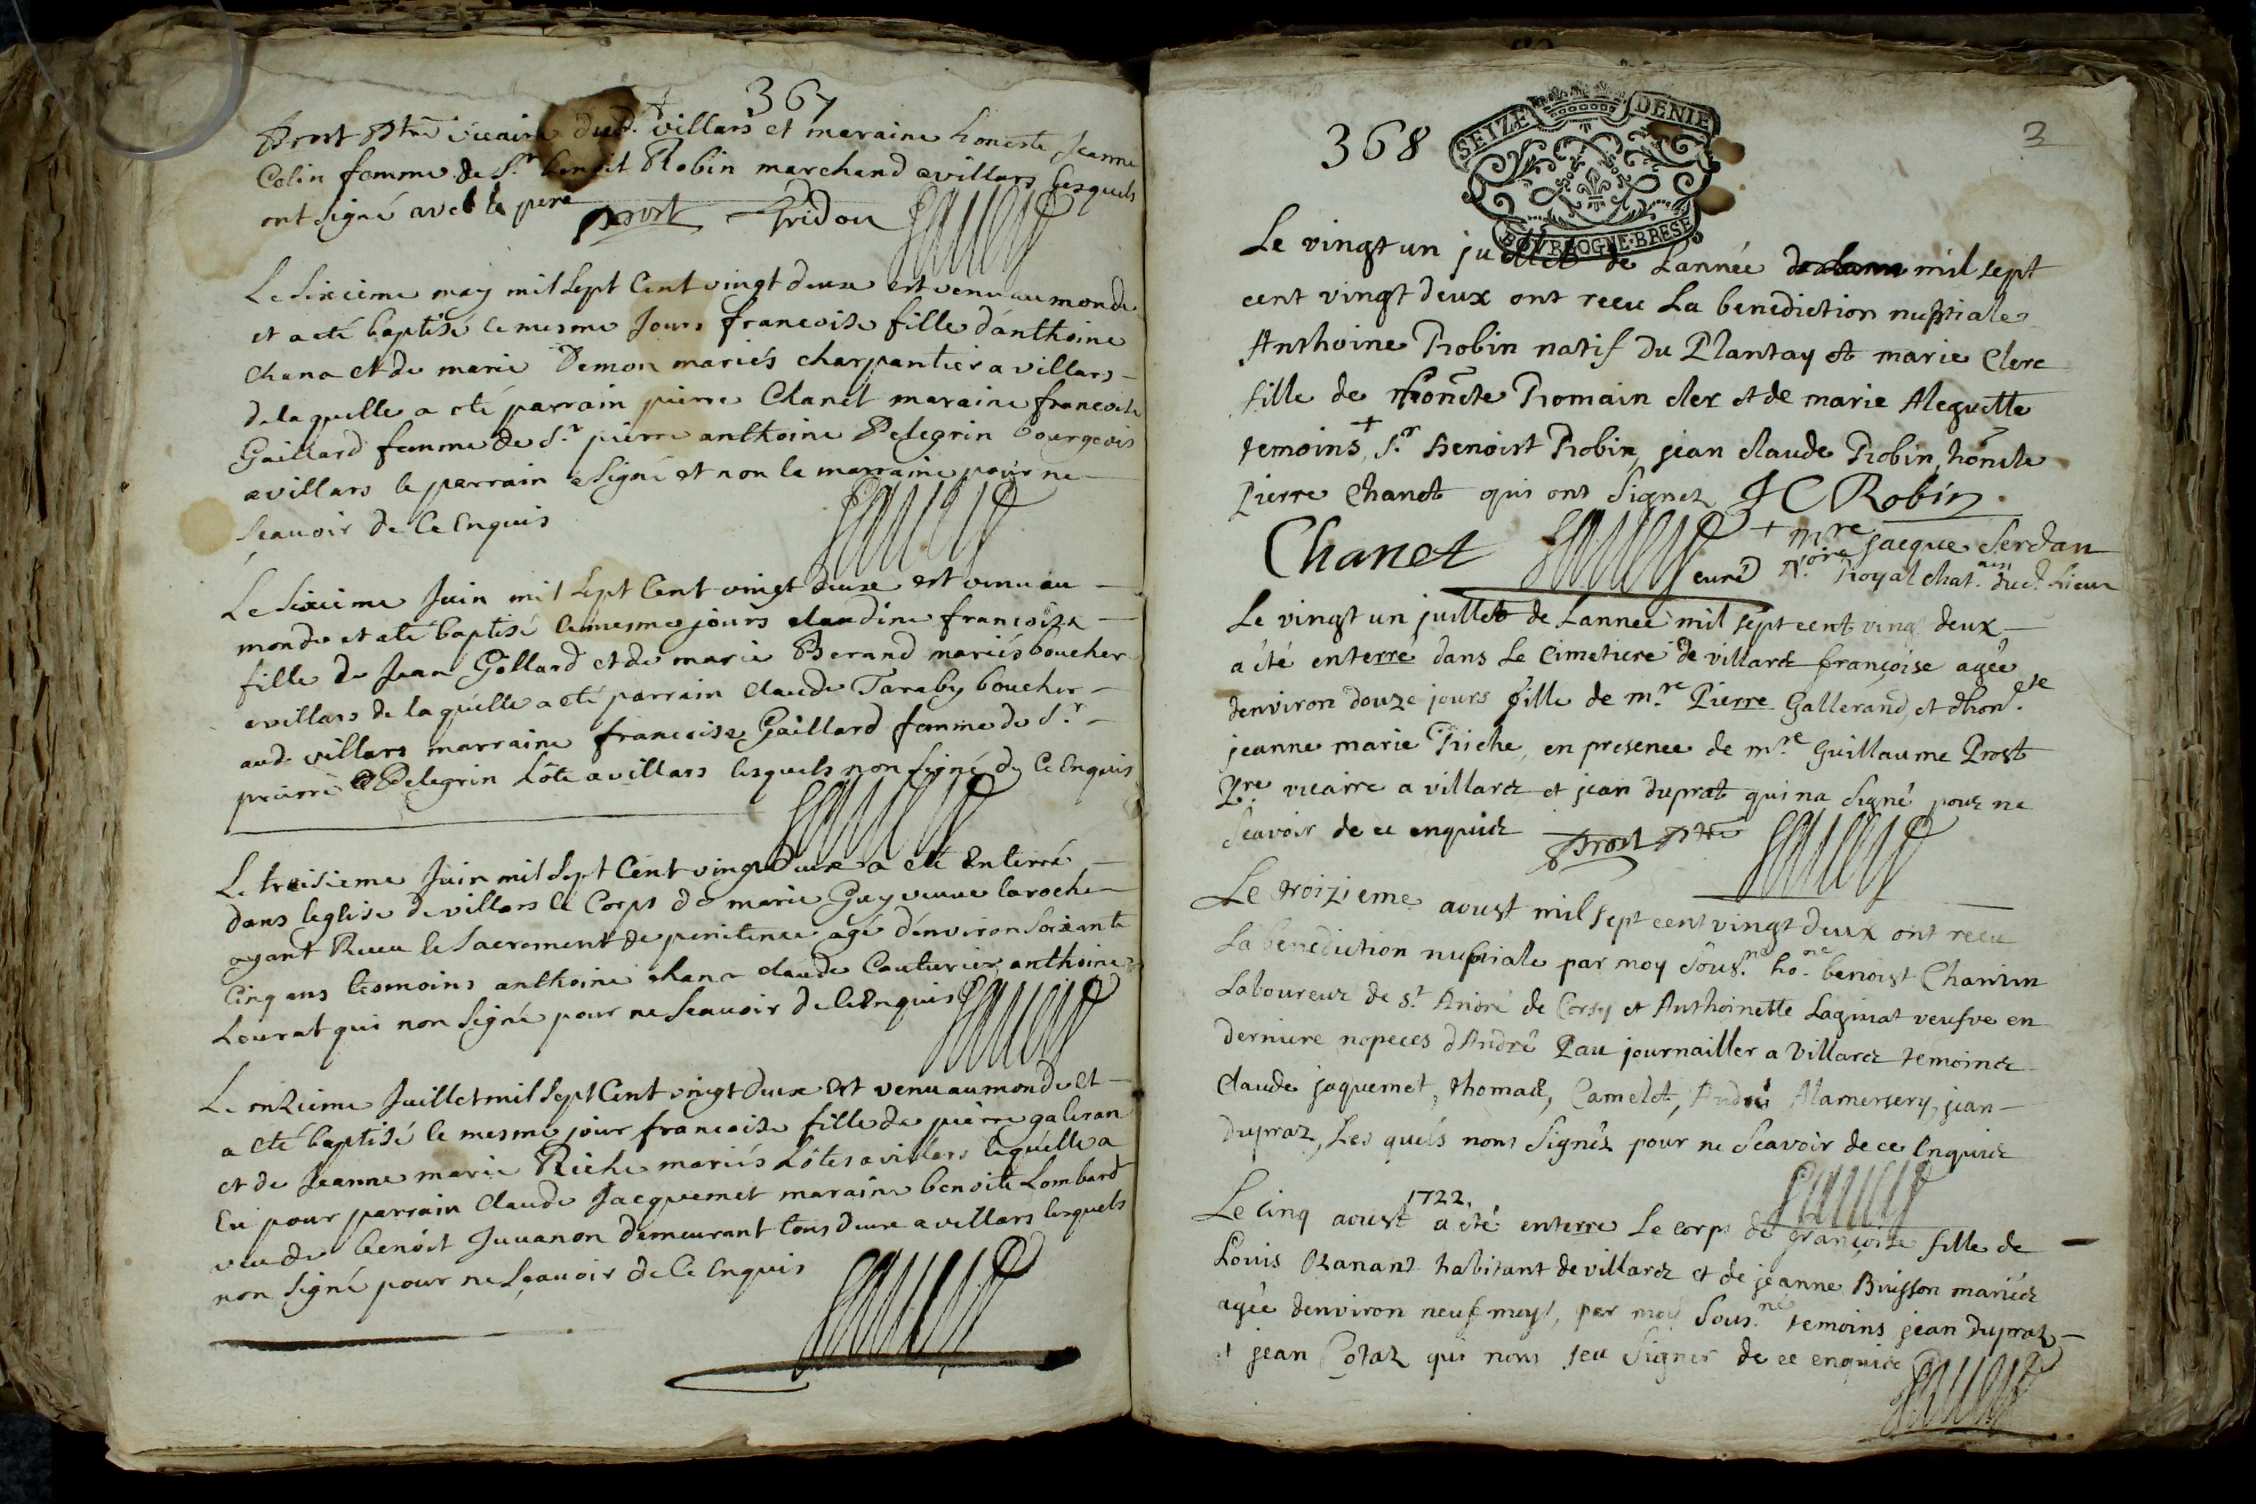 367
Prost Ptre vicaire dud. villars et maraine honeste Jeanne
Colin femme de Sr benoit Robin marchand a villars lesquels
ont signé avec le pere
prost Gridon
Le Sixième may mil Sept Cent vingt deux est venu au monde
et a eté baptisé le mesme Jours francoise fille d'anthoine
chana et de marie Demon mariés charpantier a villars
de la quelle a eté parrain pierre Chanel maraine francoise
Gaillard femme de Sr pierre anthoine Pelegrin bourgeois
a villars le parrain a Signé et non la marraine pour ne
Scauoir de Ce Enquis
Le Sixieme Juin mil Sept Cent vingt deux est venu au
monde et a eté baptisé le mesme jours claudine francoise
fille de Jean Gollard et de marie Berand mariés boucher
a villars de la quelle a eté parrain claude Taraby boucher
aud. villars marraine francoise Gaillard femme de Sr
pierre Pelegrin hôte a villars lesquels non Signé de Ce Enquis
Le troisieme Juin mil Sept Cent vingt deux a eté Enterré
dans leglise de villars le Corps de marie Guy veuue laroche
ayant Receu le Sacrement de penitence agé d'environ Soixante
Cinq ans temoins anthoine chana claude Couturier anthoine
Leurat qui non Signé pour ne Scauoir de Ce Enquis
Le onzieme Juillet mil Sept Cent vingt deux est venu au monde et
a eté baptisé le mesme jour francoise fille de pierre galeran
et de Jeanne marie Riche mariés hôtes a villars laquelle a
Eu pour parrain claude Jacquemet maraine benoite Lombard
veuue de benoit Juuanon demeurant tous deux a villars lesquels
non Signé pour ne Scauoir de Ce Enquis
368
3
SEIZE DENIE
BOVRGOGNE·BRESE
Le vingt un juillet de Lannée mil sept
cent vingt deux ont receu La benediction nuptiale
Anthoine Robin natif du Plantay et marie Clerc
fille de honeste Romain cler et de marie Aleguette
temoins + Sr Benoist Robin, jean claude Robin, honeste
Pierre Chanet qui ont Signez J C Robin
Chanet
curé
+ mre jacque Serdan
Nore Royal chatain dud. Lieux
Le vingt un juillet de Lannee mil sept cent ving deux
a été enterré dans Le Cimetiere de villarz françoise agée
denviron douze jours fille de mre Pierre Gallerand, et d'honete
jeanne marie Riche, en presence de mre Guillaume Prost
Pre vicairre a villarz et jean duprat qui na Signé pour ne
Scavoir de ce enquiz
prost Ptre
Le troizieme aoust mil sept cent vingt deux ont receu
La benediction nuptiale par moy Sousné hone benoist Charvin
Laboureur de St André de Corsy et Anthoinette Laginat veufve en
derniere nopeces d'André Pau journailler a Villarz temoinz
Claude jaquemet, thomas, Camelet, André Alamersery, jean
dupraz, Les quels nons Signéz pour ne Scavoir de ce Enquiz
Le Cinq aoust 1722. a été enterre Le corps de françoise fille de
Louis Ozanant habitant de villarz et de jeanne Buisson mariéz
agée denviron neuf moys, par moy Sousné temoins jean dupraz
et jean Cotaz qui nons seu Signer de ce enquiz